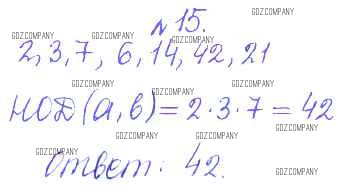 № 15.
2, 3, 7, 6, 14, 42, 21
НОД (а, в) = 2 · 3 · 7 = 42
Ответ: 42.
GDZCOMPANY
GDZCOMPANY
GDZCOMPANY
GDZCOMPANY
GDZCOMPANY
GDZCOMPANY
GDZCOMPANY
GDZCOMPANY
GDZCOMPANY
GDZCOMPANY
GDZCOMPANY
GDZCOMPANY
GDZCOMPANY